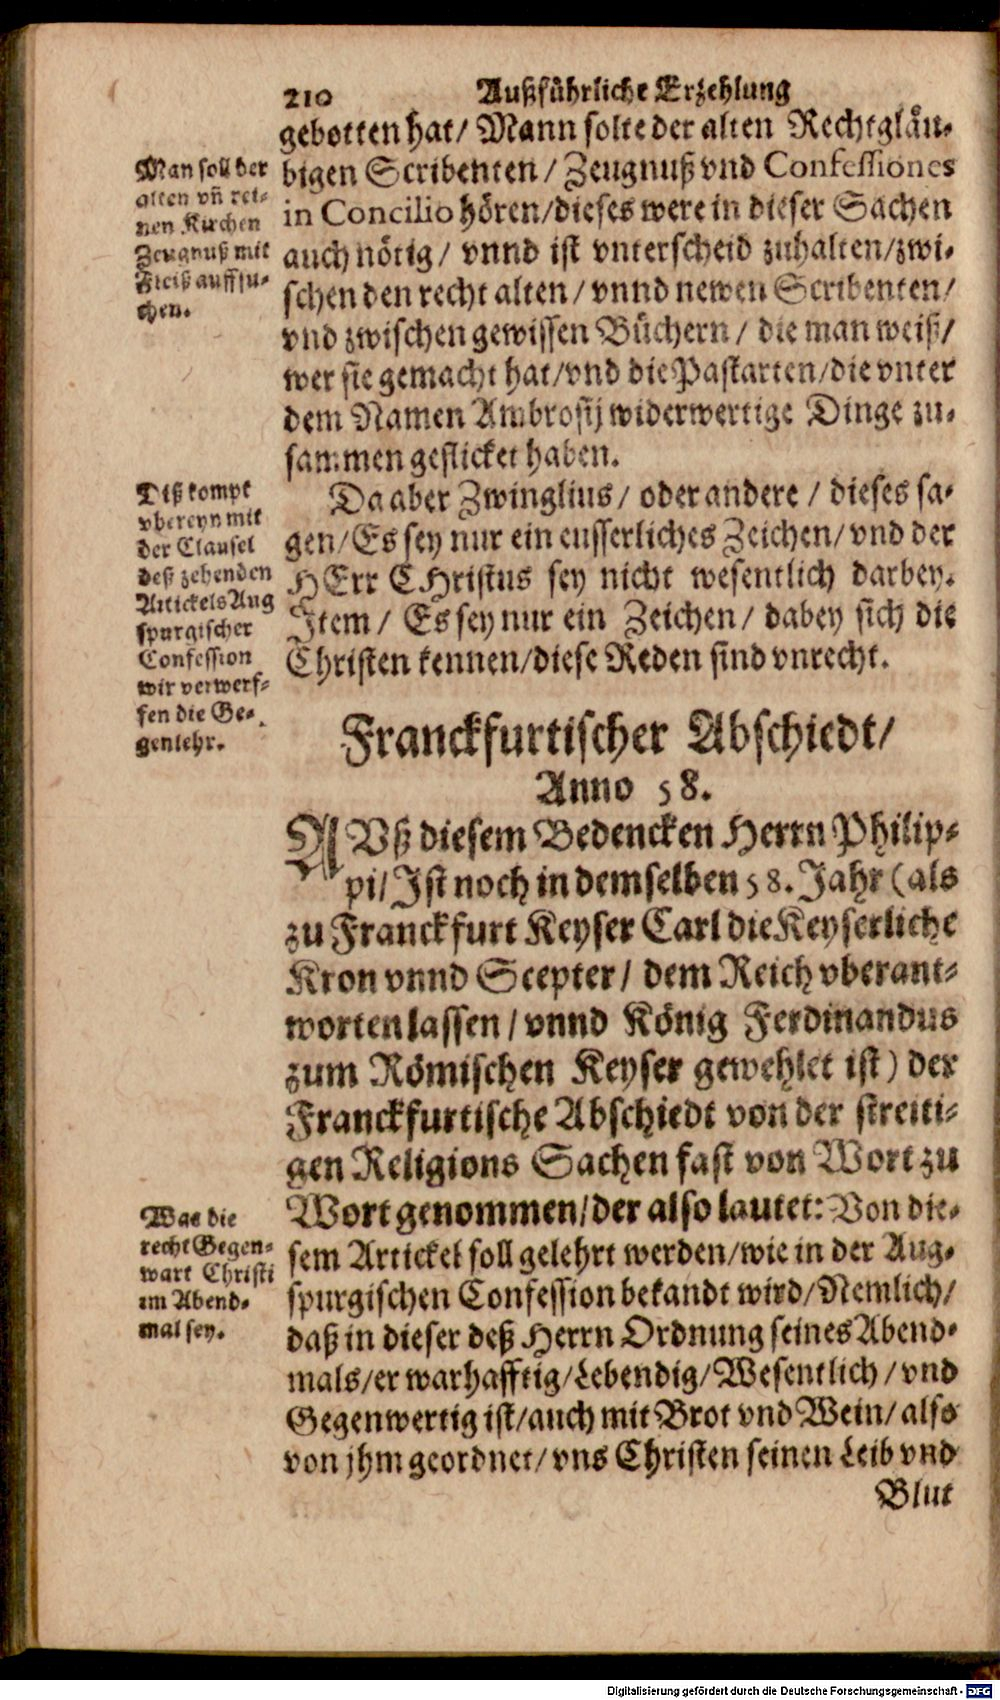 210 Außführliche Erzehlung
gebotten hat/ Mann solte der alten Rechtgläu-
bigen Scribenten / Zeugnuß vnd Confessiones
in Concilio hören/dieses were in dieser Sachen
auch nötig / vnnd ist vnterscheid zuhalten/zwi-
schen den recht alten / vnnd newen Scribenten/
vnd zwischen gewissen Büchern / die man weiß/
wer sie gemacht hat/vnd die Pastarten/die vnter
dem Namen Ambrosij widerwertige Dinge zu-
sammen geflicket haben.
Man soll der
alten vñ rei-
nen Kirchen
Zeugnuß mit
Fleiß auffsu-
chen.
Da aber Zwinglius / oder andere / dieses sa-
gen/Es sey nur ein eusserliches Zeichen/ vnd der
HErr CHristus sey nicht wesentlich darbey.
Item / Es sey nur ein Zeichen / dabey sich die
Christen kennen/diese Reden sind vnrecht.
Diß kompt
vbereyn mit
der Clausel
deß zehenden
Artickels Aug
spurgischer
Confession
wir verwerf-
fen die Ge-
genlehr.
Franckfurtischer Abschiedt/
Anno 58.
AVß diesem Bedencken Herrn Philip-
pi/ Ist noch in demselben 58. Jahr (als
zu Franckfurt Keyser Carl die Keyserliche
Kron vnnd Scepter / dem Reich vberant-
worten lassen / vnnd König Ferdinandus
zum Römischen Keyser gewehlet ist) der
Franckfurtische Abschiedt von der streiti-
gen Religions Sachen fast von Wort zu
Wort genommen/der also lautet: Von die-
sem Artickel soll gelehrt werden/wie in der Aug-
spurgischen Confession bekandt wird/Nemlich/
daß in dieser deß Herrn Ordnung seines Abend-
mals/er warhafftig/Lebendig/Wesentlich / vnd
Gegenwertig ist/auch mit Brot vnd Wein/ also
von jhm geordnet/ vns Christen seinen Leib vnd
Was die
recht Gegen-
wart Christi
im Abend-
mal sey.
Blut
Digitalisierung gefördert durch die Deutsche Forschungsgemeinschaft - DFG